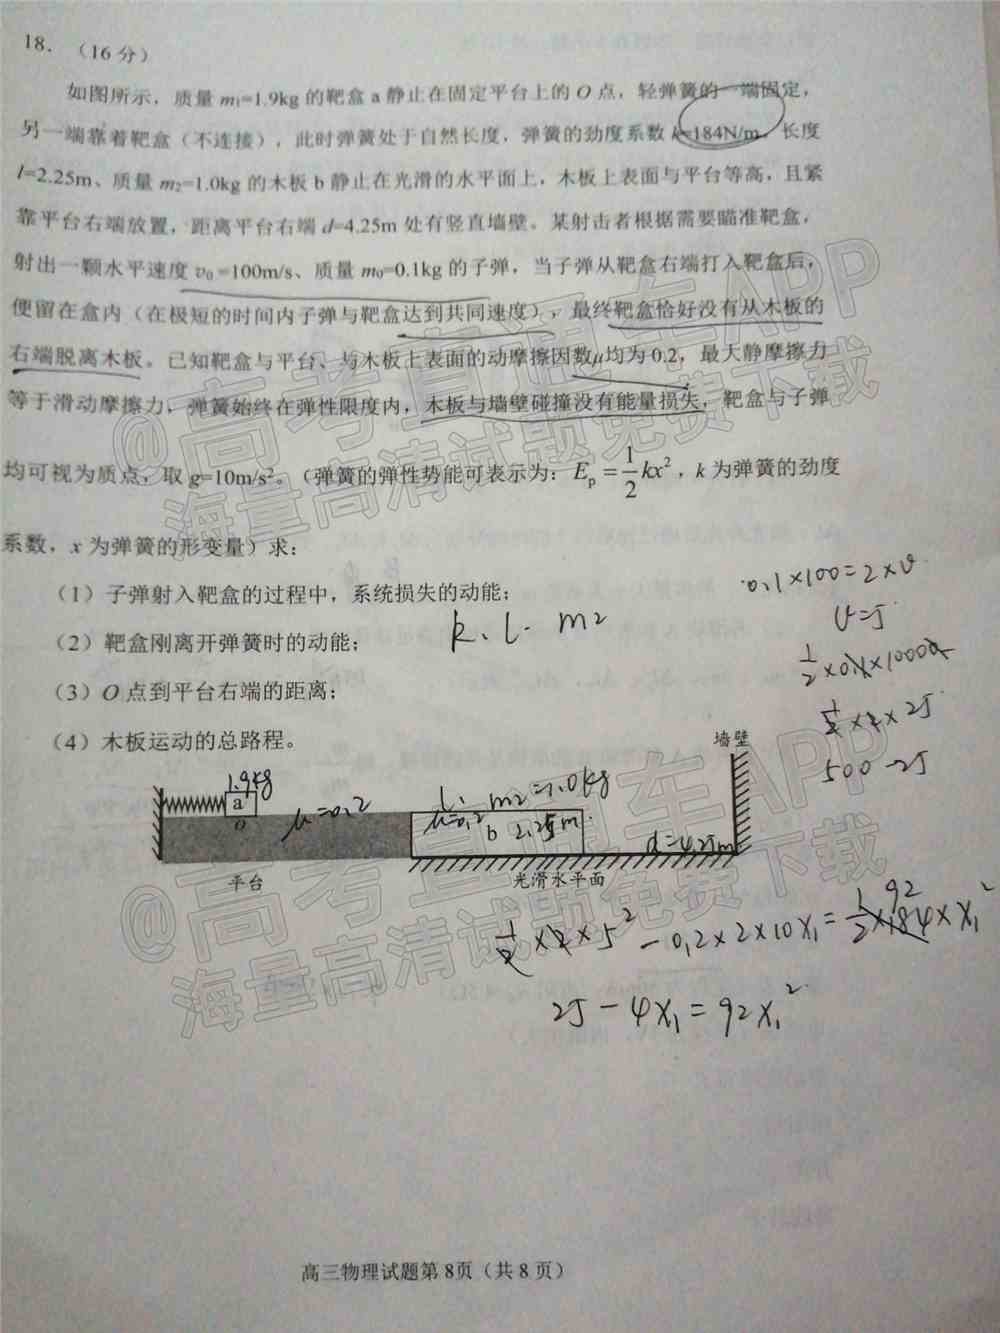 18. （16分）
如图所示，质量 m₁=1.9kg 的靶盒 a 静止在固定平台上的 O 点，轻弹簧的一端固定，
另一端靠着靶盒（不连接），此时弹簧处于自然长度，弹簧的劲度系数 k=184N/m。长度
l=2.25m、质量 m₂=1.0kg 的木板 b 静止在光滑的水平面上，木板上表面与平台等高，且紧
靠平台右端放置，距离平台右端 d=4.25m 处有竖直墙壁。某射击者根据需要瞄准靶盒，
射出一颗水平速度 v₀ =100m/s、质量 m₀=0.1kg 的子弹，当子弹从靶盒右端打入靶盒后，
便留在盒内（在极短的时间内子弹与靶盒达到共同速度），最终靶盒恰好没有从木板的
右端脱离木板。已知靶盒与平台、与木板上表面的动摩擦因数μ均为 0.2，最大静摩擦力
等于滑动摩擦力，弹簧始终在弹性限度内，木板与墙壁碰撞没有能量损失，靶盒与子弹
均可视为质点，取 g=10m/s²。（弹簧的弹性势能可表示为：Eₚ = 1/2 kx²，k 为弹簧的劲度
系数，x 为弹簧的形变量）求：
（1）子弹射入靶盒的过程中，系统损失的动能；
（2）靶盒刚离开弹簧时的动能；
（3）O 点到平台右端的距离；
（4）木板运动的总路程。
k、l、m2
0.1×100=2×v
v=5
1/2×0.1×10000
1/2×2×25
500-25
墙壁
1.9kg
a
O
μ=0.2
l. m2=1.0kg
μ=0.2 b 2.25m
d=4.25m
平台
光滑水平面
1/2×2×5²-0.2×2×10x₁=1/2×184×x₁²
92
25-4x₁=92x₁²
@高考直通车APP
海量高清试题免费下载
@高考直通车APP
海量高清试题免费下载
高三物理试题第 8页（共 8 页）